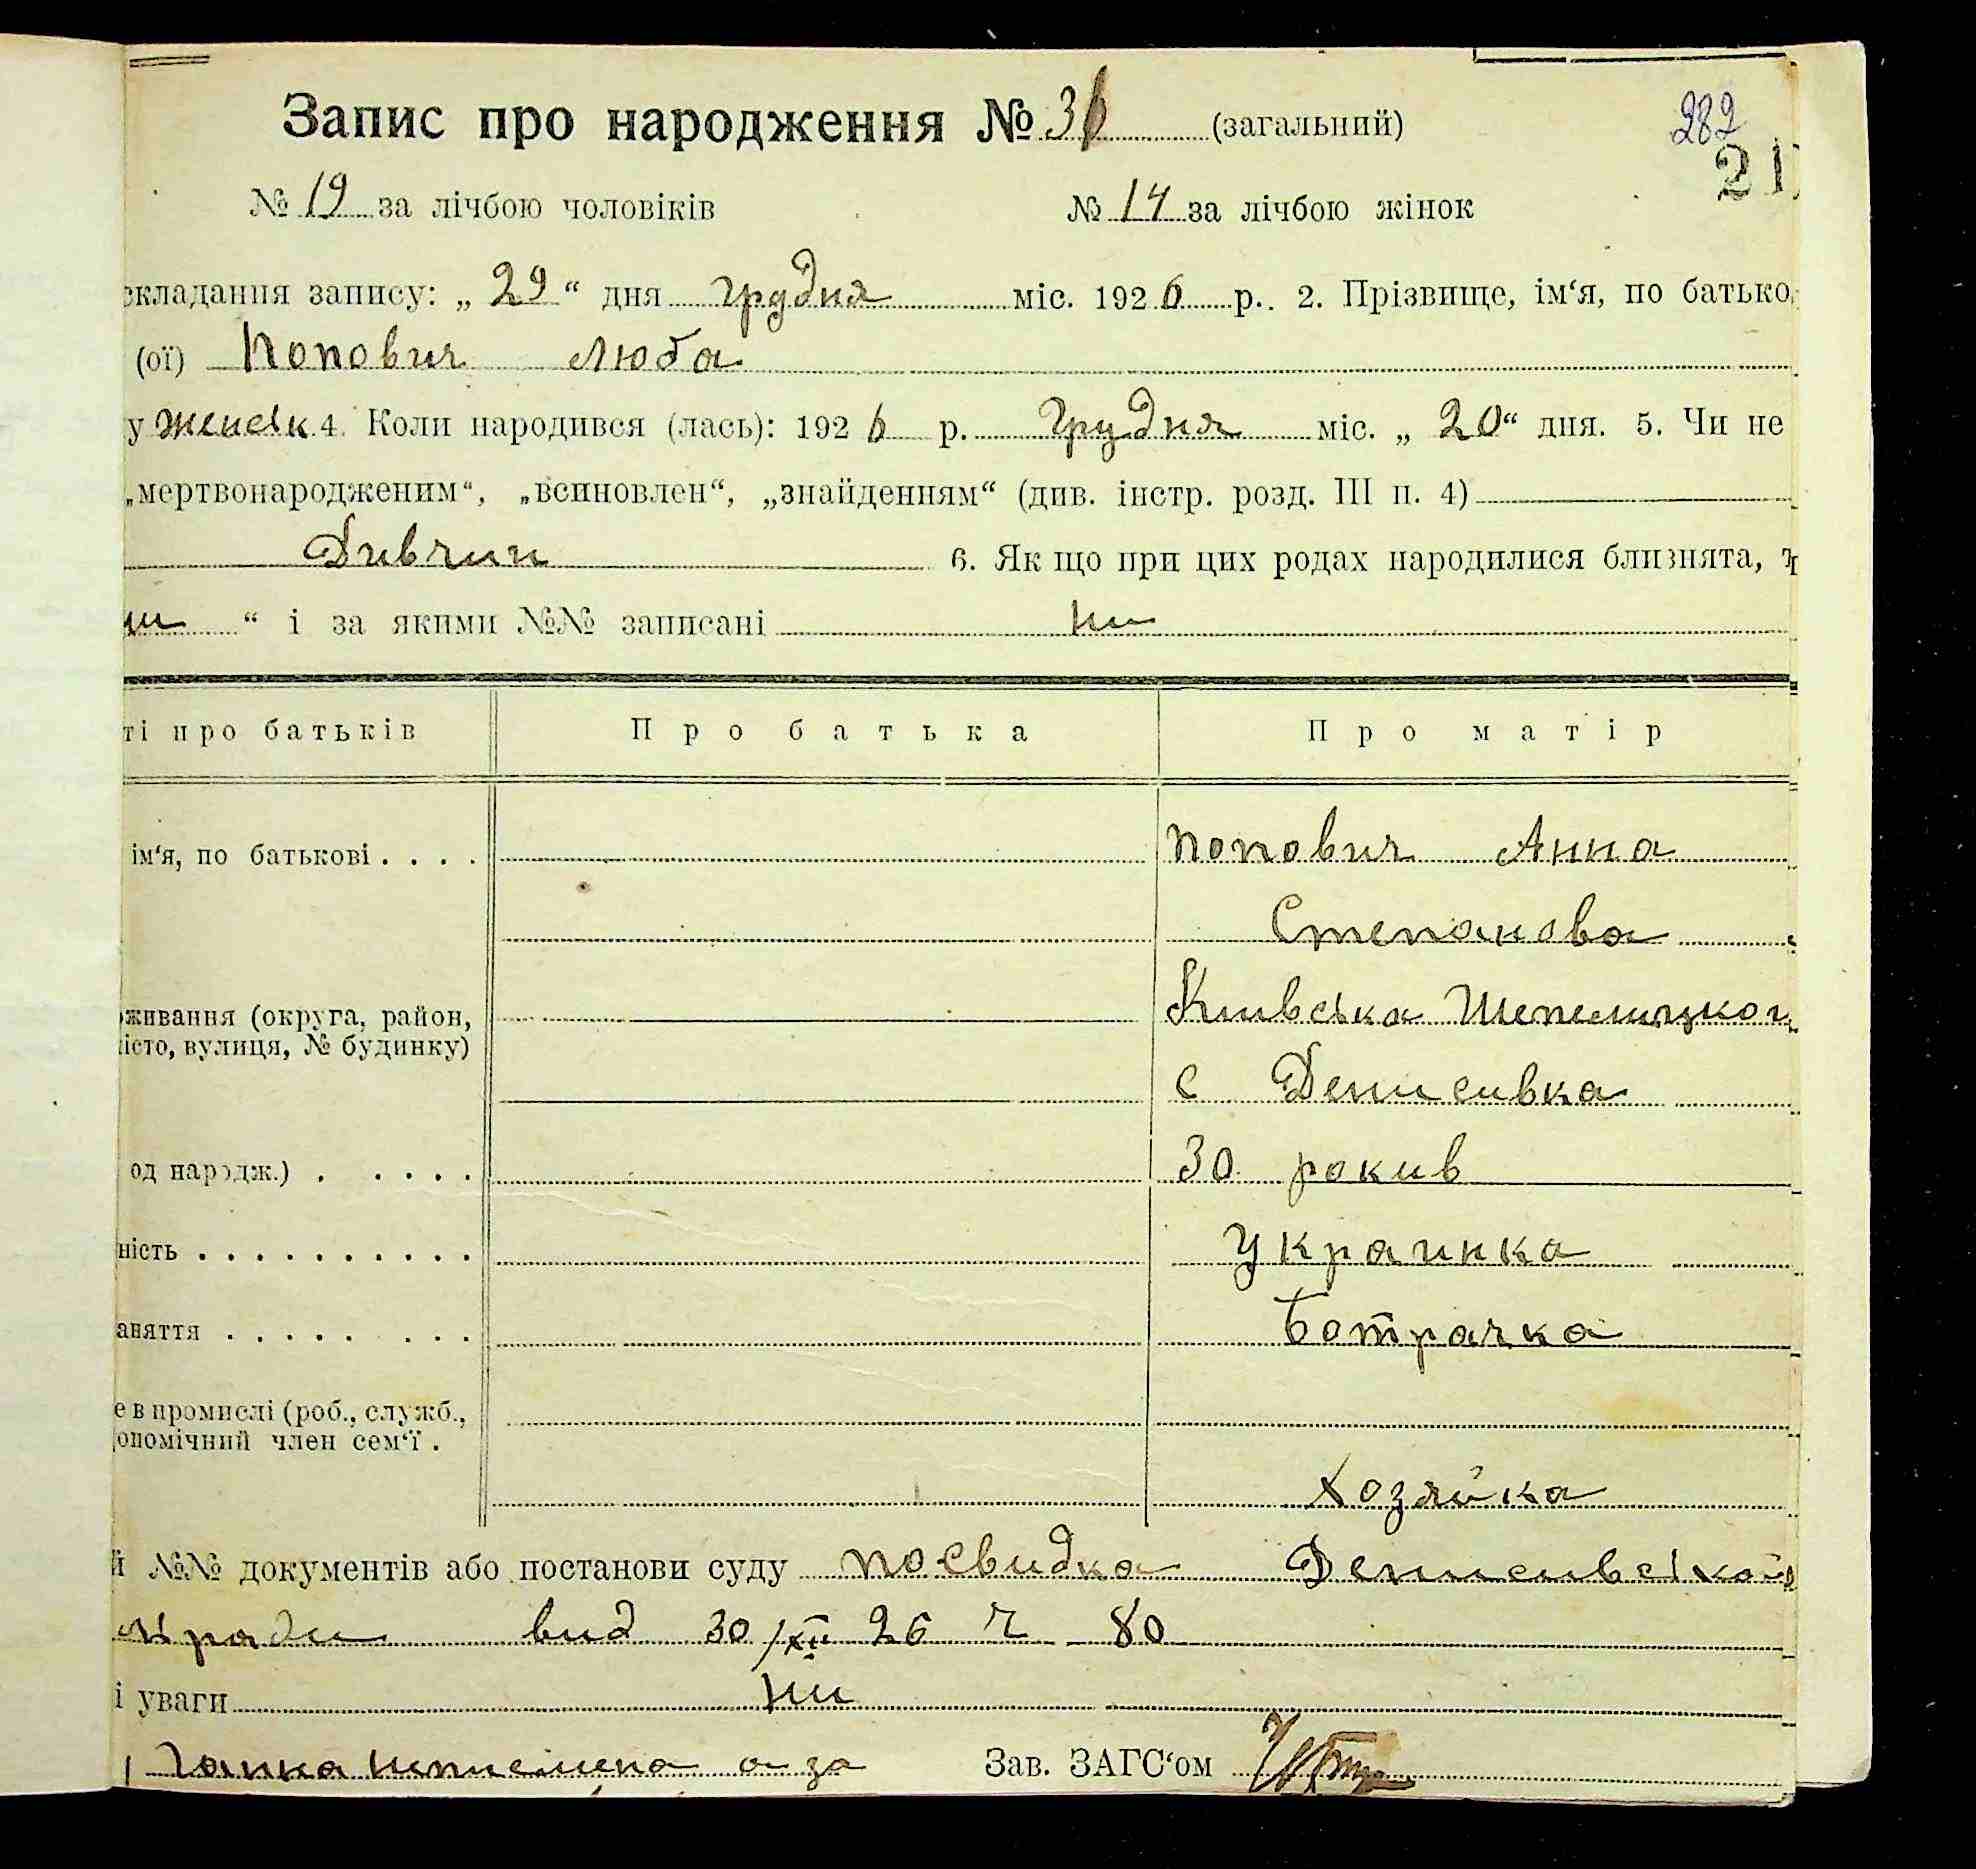 Запис про народження № 36 (загальний)
282
21
№ 19 за лічбою чоловіків № 14 за лічбою жінок
складання запису: „ 29 “ дня грудня міс. 192 6 р. 2. Прізвище, ім‘я, по батько
(ої) Попович Люба
у женськ 4. Коли народився (лась): 192 6 р. Грудня міс. „ 20 “ дня. 5. Чи не
„мертвонародженим“, „всиновлен“, „знайденням“ (див. інстр. розд. III п. 4)
Дивчин 6. Як що при цих родах народилися близнята,
ни “ і за якими №№ записані ни
ті про батьків Про батька Про матір
ім‘я, по батькові . . . . Попович Анна
Степанова
живання (округа, район, Киивська Шепелицког
істо, вулиця, № будинку)
с Денисивка
од нар дж.) . . . . . 30 рокив
ність . . . . . . . . . . Украинка
аняття . . . . . . . . Ботрачка
е в промислі (роб., служб.,
ономічний член сем‘ї .
Хозяйка
й №№ документів або постанови суду посвидка Денисивської
ради вид 30/XII 26 ч 80
і уваги ни
Ганка а за Зав. ЗАГС‘ом